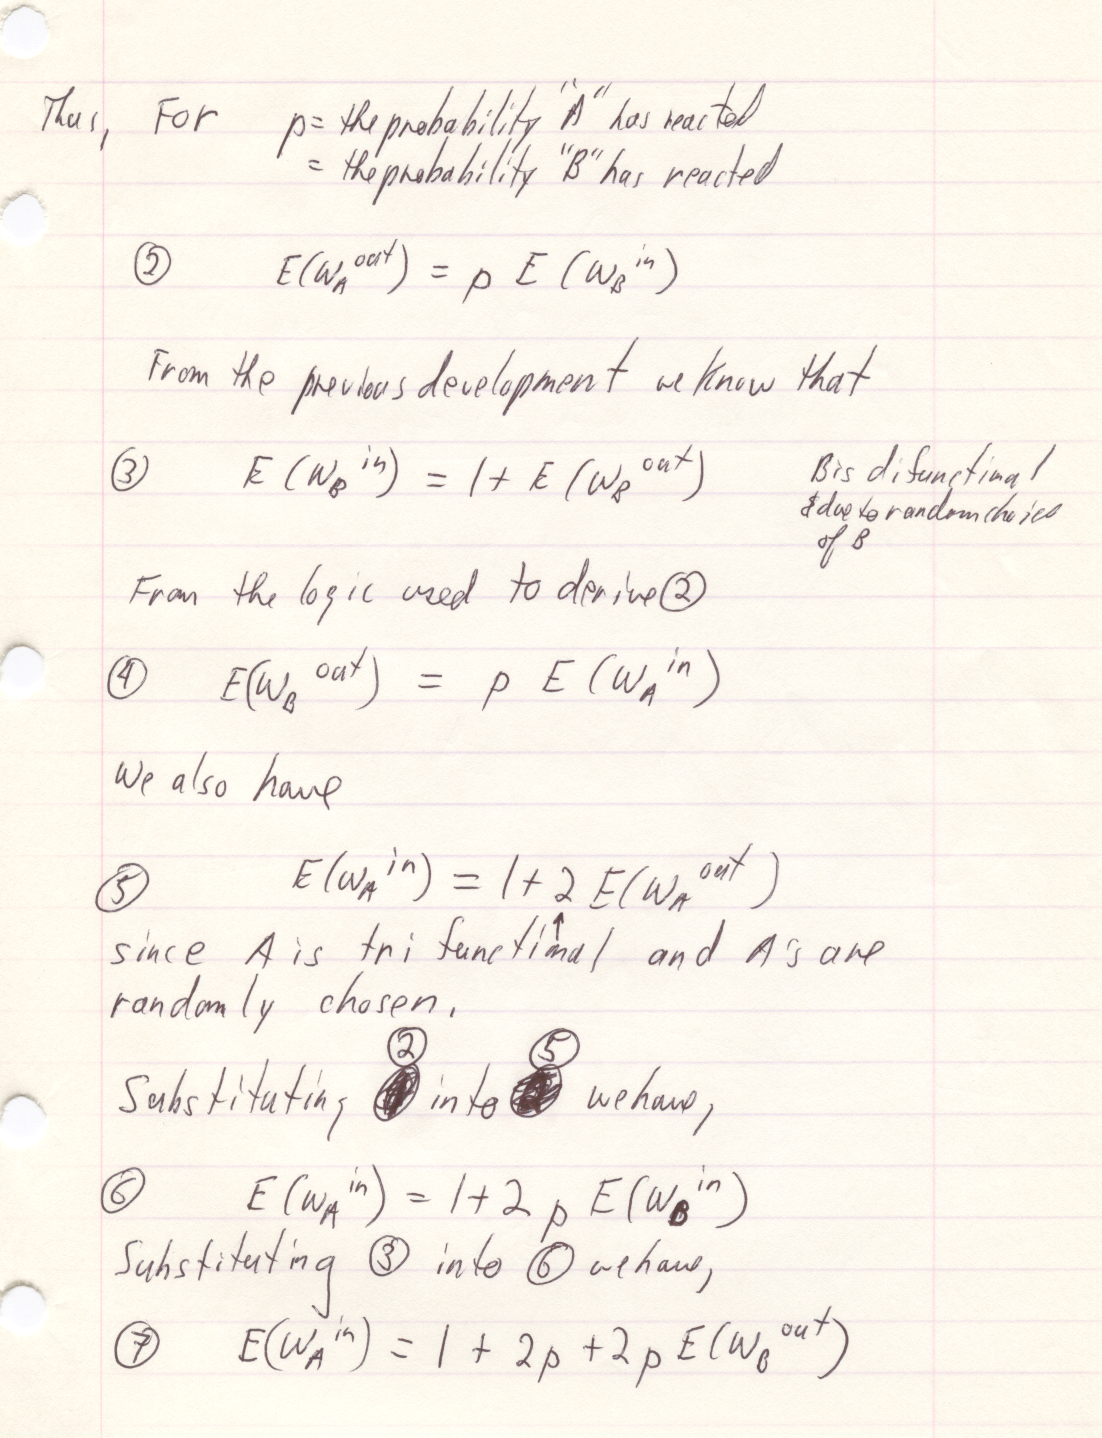 Thus, For p = the probability "A" has reacted
= the probability "B" has reacted
② E(W_A^out) = p E (W_B^in)
From the previous development we know that
③ E (W_B^in) = 1 + E (W_B^out) B is difunctional
& due to random choice
of B
From the logic used to derive ②
④ E(W_B^out) = p E (W_A^in)
We also have
⑤ E(W_A^in) = 1 + 2 E(W_A^out)
↑
since A is trifunctional and A's are
randomly chosen.
② ⑤
Substituting into we have,
⑥ E (W_A^in) = 1 + 2 p E(W_B^in)
Substituting ③ into ⑥ we have,
⑦ E(W_A^in) = 1 + 2p + 2p E(W_B^out)